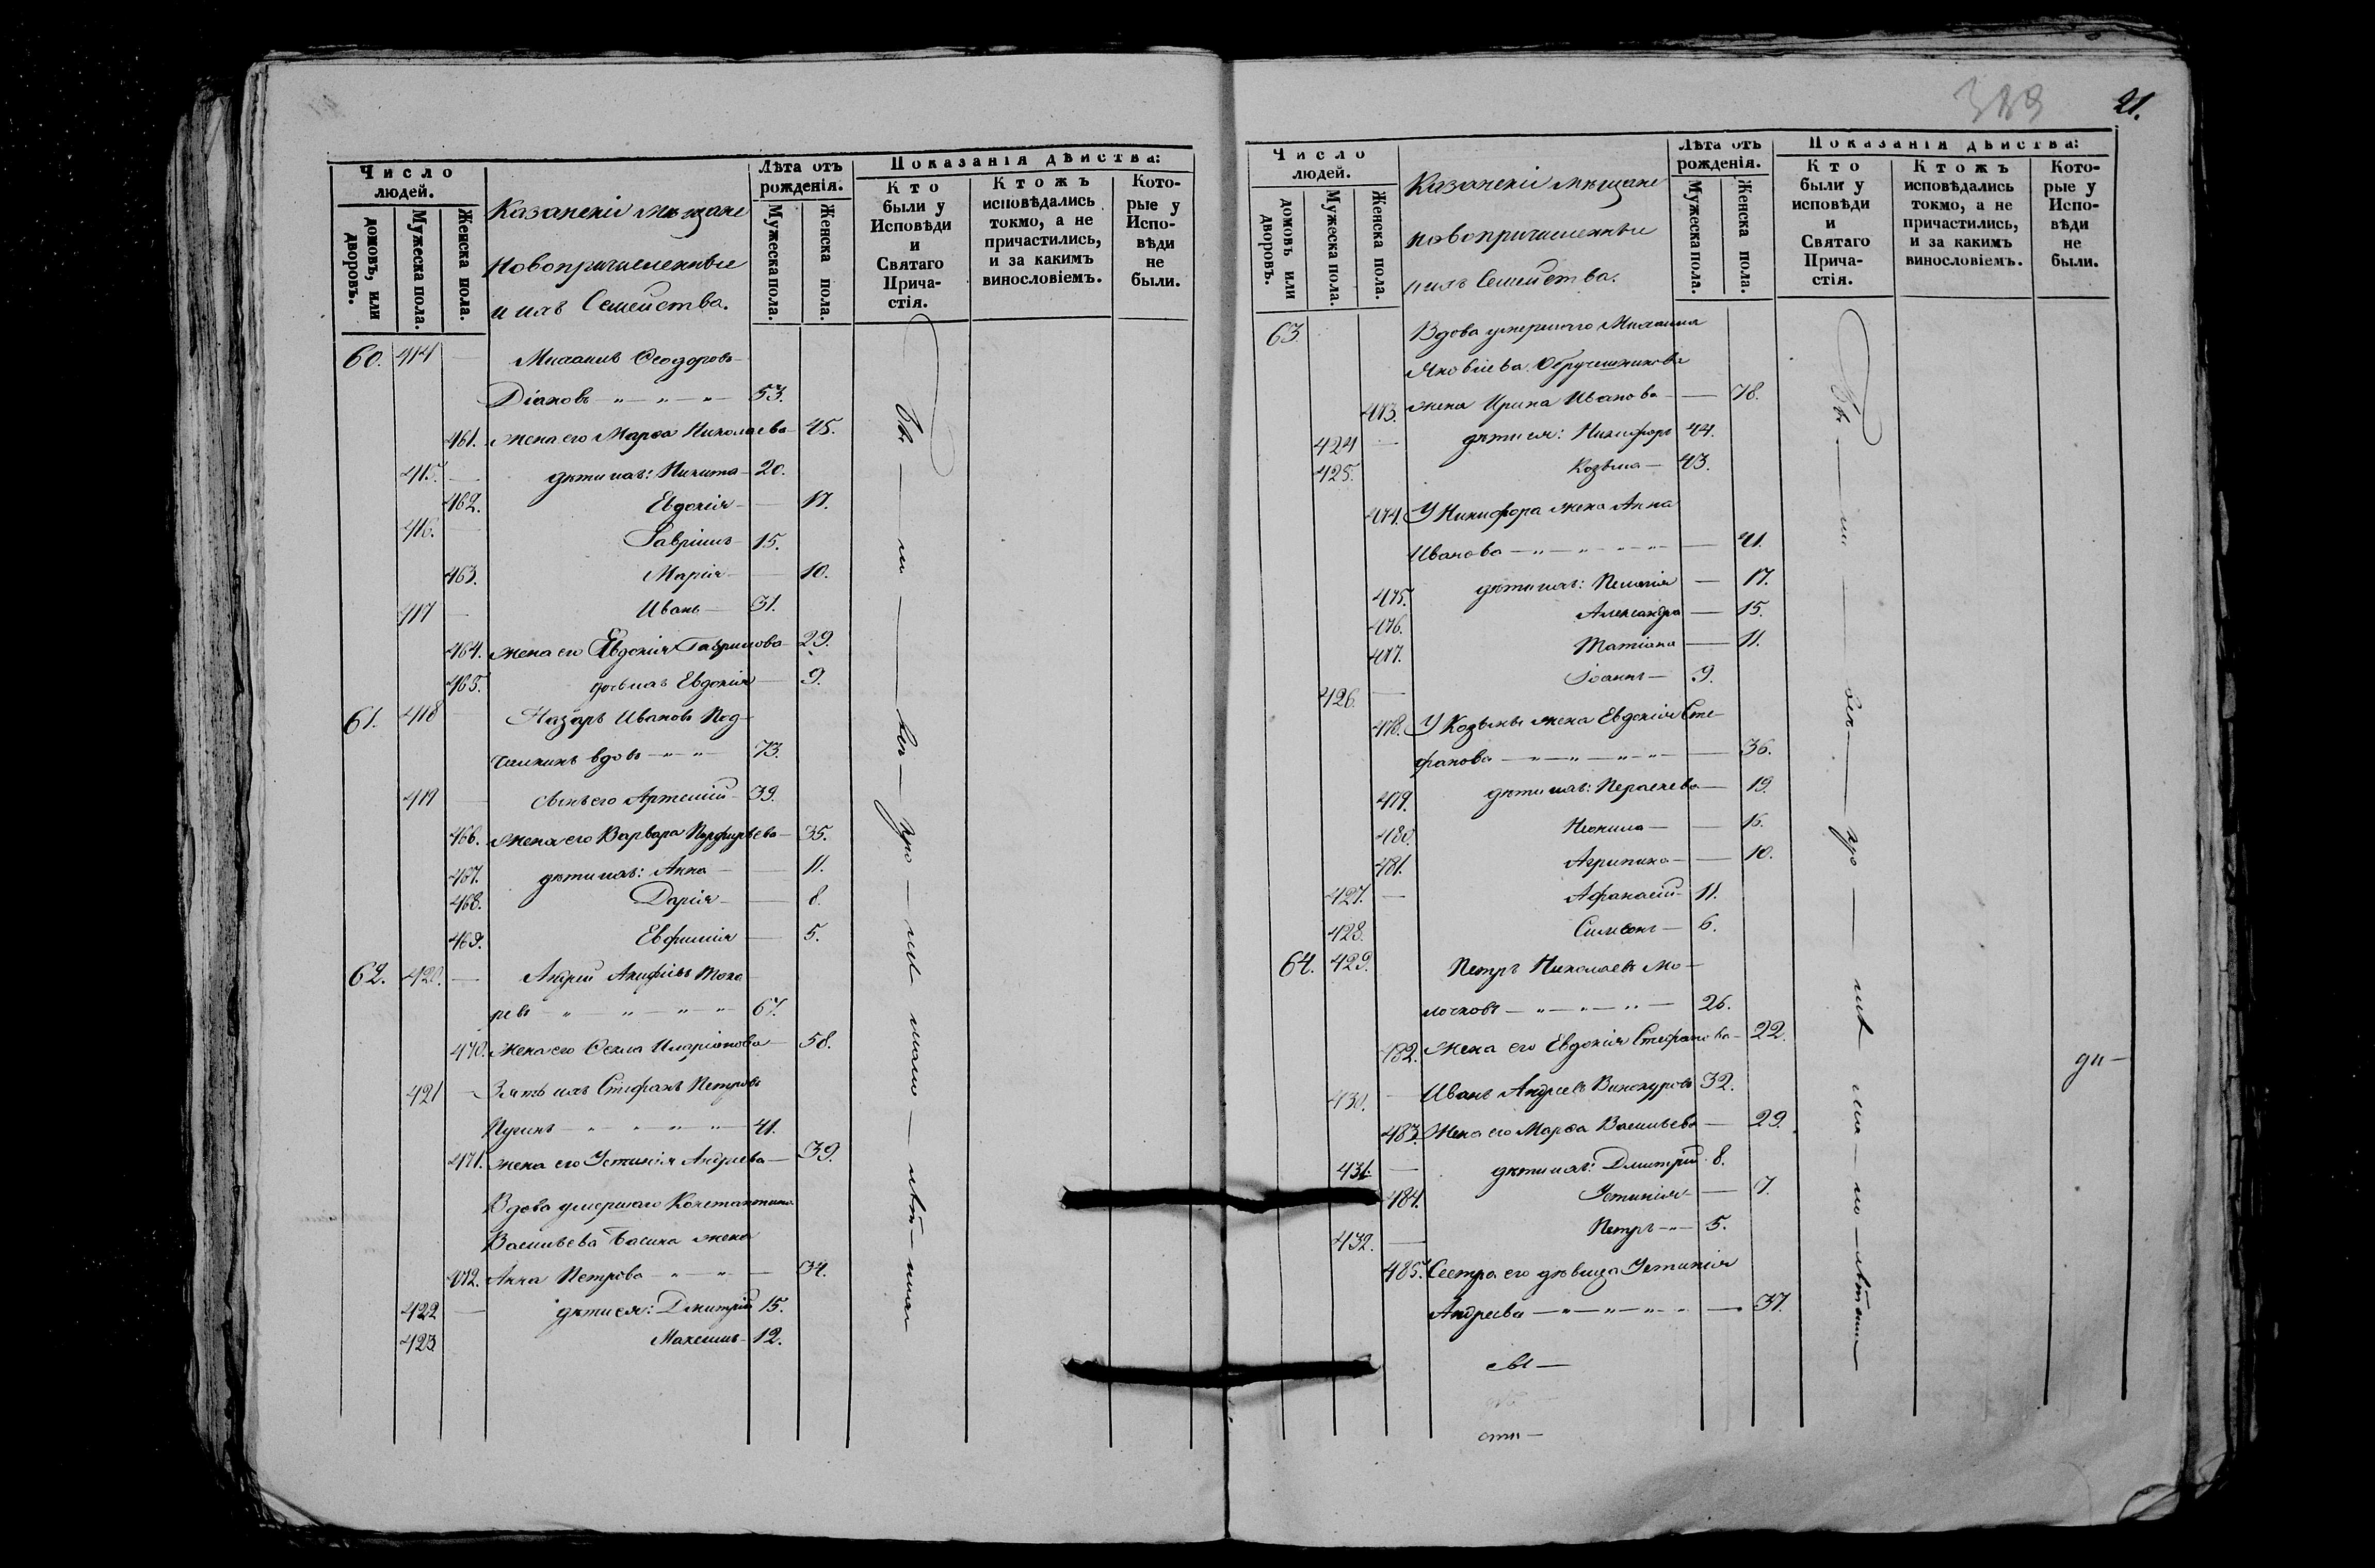 Число людей.
домовъ, или дворовъ.
Мужеска пола.
Женска пола.
Казанскіи мѣщане
новопричисленные
и ихъ Семейства.
Лѣта отъ рожденія.
Мужеска пола.
Женска пола.
Показанія дѣйства:
Кто были у Исповѣди и Святаго Прича-стія.
Ктожъ исповѣдались токмо, а не причастились, и за какимъ винословіемъ.
Кото-рые у Испо-вѣди не были.
60. 414 — Михаилъ Ѳеодоровъ
Діаковъ — „ — „ — „ — 53.
461. Жена его Марѳа Николаева — 45.
415. — дѣти ихъ: Никита — 20.
462. Евдокія — 17.
416. — Гавріилъ — 15.
463. Марія — 10.
417 — Иванъ — 31.
464. Жена его Евдокія Гаврилова — 29.
465. дочь ихъ Евдокія — 9.
61. 418 — Назаръ Ивановъ Под-
вдовъ — „ — „ — 73.
419 — Сынъ его Артемій — 39.
466. Жена его Варвара Порфирьева — 35.
467. дѣти ихъ: Анна — 11.
468. Дарія — 8.
469. Евфимія — 5.
62. 420. — Андрей Акифіевъ Тока
ревъ — „ — „ — „ — „ — 67.
470. Жена его Ѳекла Иларіонова — 58.
421 — Зять ихъ Стефанъ Петровъ
— „ — „ — „ — „ — 41.
471. Жена его Устинія Андреева — 39.
Вдова умершаго Константина
Васильева жена
472. Анна Петрова — „ — „ — 34.
422 — дѣти ея: Дмитрій 15.
423 Максимъ — 12.
389
21.
Число людей.
домовъ или дворовъ.
Мужеска пола.
Женска пола.
Казанскіи мѣщане
новопричисленные
и ихъ Семейства.
Лѣта отъ рожденія.
Мужеска пола.
Женска пола.
Показанія дѣйства:
Кто были у исповѣди и Святаго Прича-стія.
Ктожъ исповѣдались токмо, а не причастились, и за какимъ винословіемъ.
Кото-рые у Испо-вѣди не были.
63. Вдова умершаго Михаила
Яковлева Обручешникова
473. жена Ирина Иванова — 78.
424 — дѣти ея: Никифоръ 44.
425. Козьма — 43.
474. У Никифора жена Анна
Иванова — „ — „ — „ — „ — 41.
475. дѣти ихъ: Пелагія — 17.
476. Александра — 15.
477. Татіана — 11.
426. — Іоаннъ — 9.
478. У Козьмы жена Евдокія Сте-
фанова — „ — „ — „ — „ — 36.
479. дѣти ихъ: — 19.
480. Неонила — 16.
481. Агрипина — 10.
427. — Афанасій — 11.
428. Симеонъ — 6.
64. 429. Петръ Николаевъ Мо-
лочковъ — „ — „ — „ — 26.
482. Жена его Евдокія Стефанова — 22.
430. — Иванъ Андреевъ Винокуровъ 32.
483. Жена его Марѳа Васильева — 29.
431. — дѣти ихъ: Дмитрій 8.
484. Устинія — 7.
432. — Петръ — „ — 5.
485. Сестра его дѣвица Устинія
Андреева — „ — „ — „ — 37.